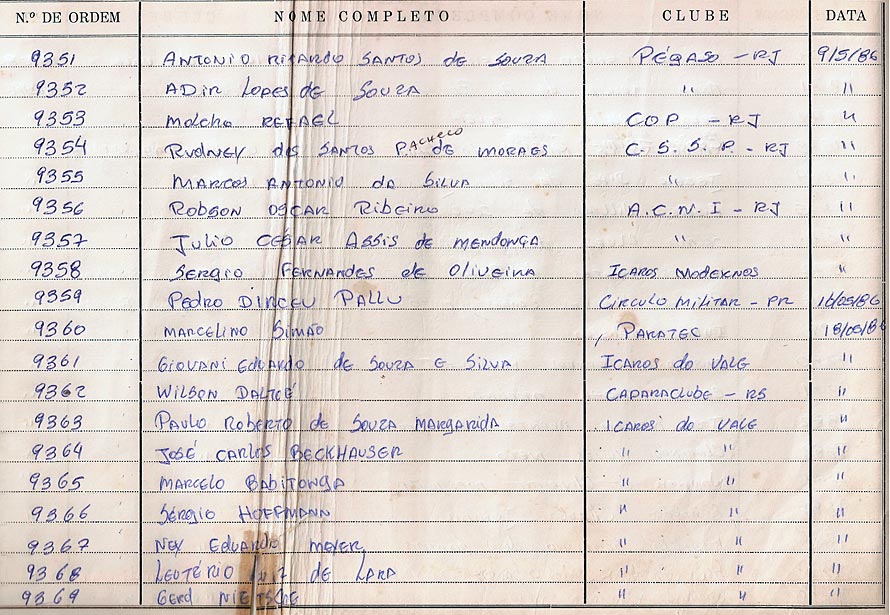 N.º DE ORDEM NOME COMPLETO CLUBE DATA
9351 ANTONIO RICARDO SANTOS de SOUZA PÉGASO - RJ 9/5/86
9352 ADIR LOPES de SOUZA " "
9353 Molcho REFAEL COP - RJ "
9354 RUDNEY dos SANTOS P. PACHECO de MORAES C.S.S.P. - RJ "
9355 MARCOS ANTONIO da SILVA " "
9356 ROBSON OSCAR Ribeiro A.C.N.I - RJ "
9357 JULIO CÉSAR ASSIS de MENDONÇA " "
9358 SERGIO FERNANDES de OLIVEIRA ICAROS MODERNOS "
9359 PEDRO DIRCEU PALLU CIRCULO MILITAR - PR 16/05/86
9360 MARCELINO SIMÃO , PARATEC 18/05/86
9361 GIOVANI EDUARDO de SOUZA E SILVA ICAROS do VALE "
9362 WILSON DALTOÉ CAPARACLUBE - RS "
9363 PAULO ROBERTO de SOUZA MARGARIDA ICAROS do VALE "
9364 JOSÉ CARLOS BECKHAUSER " " "
9365 MARCELO BABITONGA " " "
9366 SÉRGIO HOFFMANN " " "
9367 NEY EDUARDO MEYER " " "
9368 LEUTÉRIO LUIZ de LARA " " "
9369 GERD NIETSCHE " " "